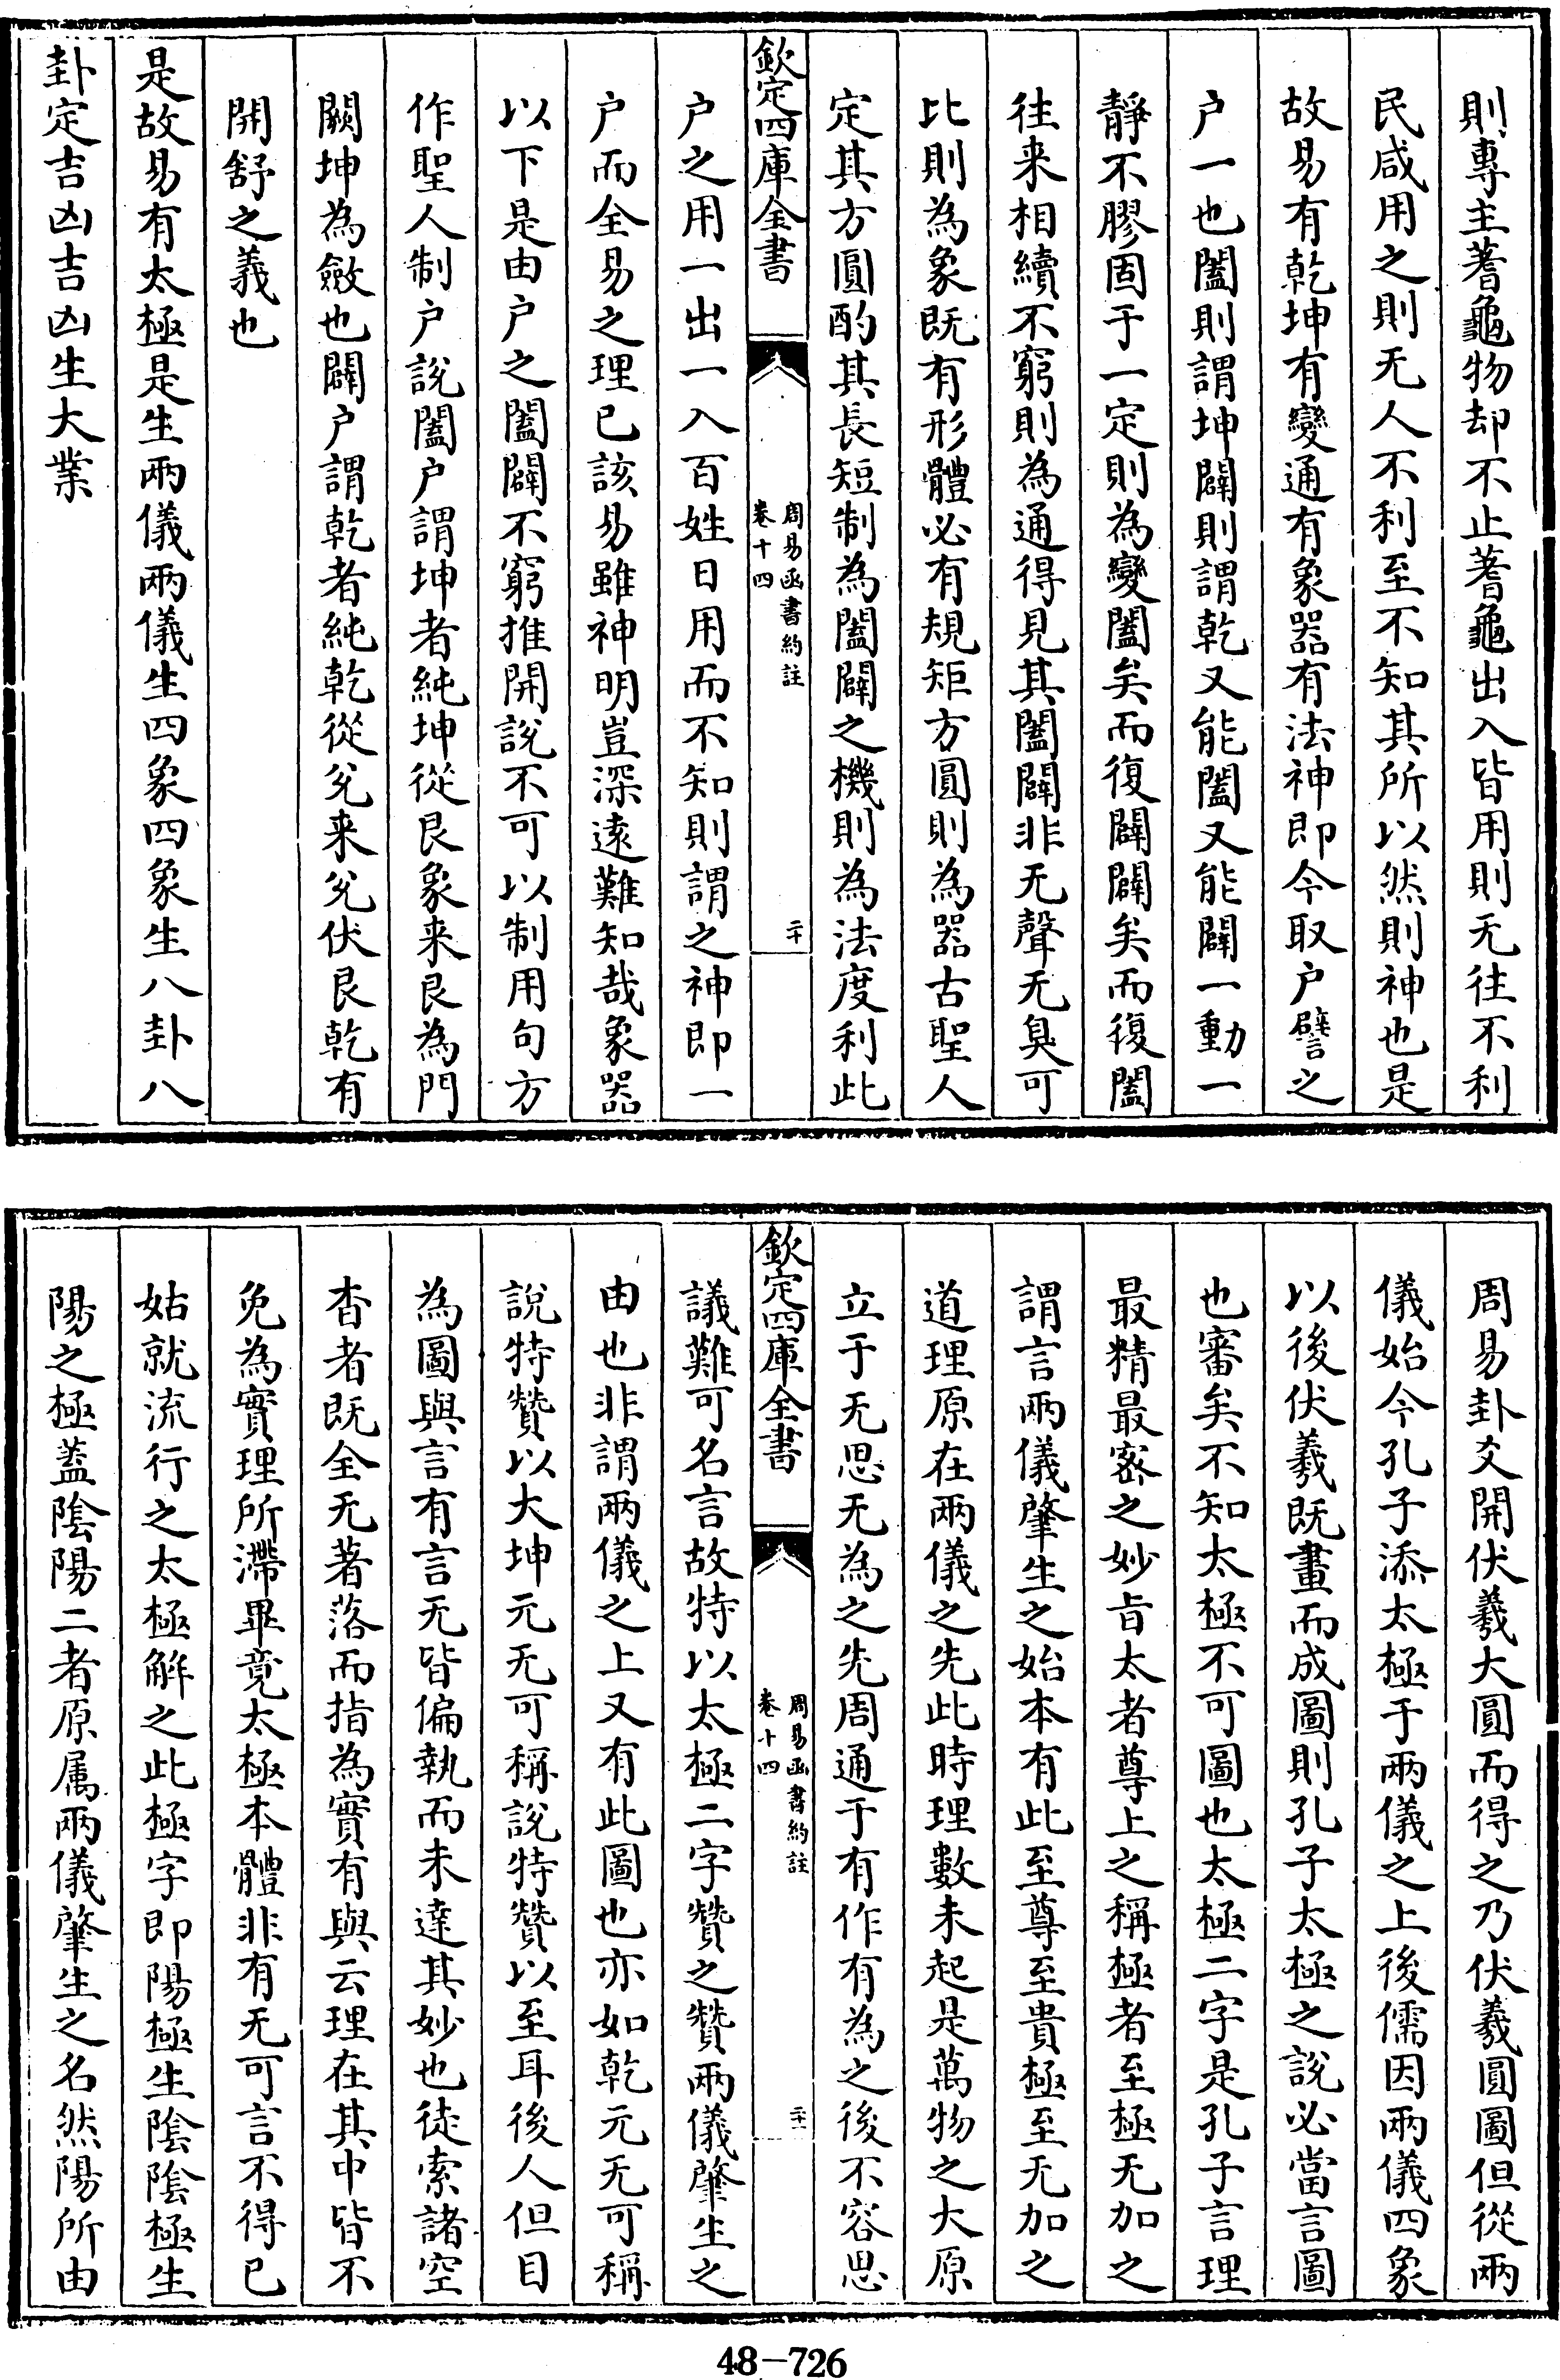 則專主蓍龜物却不止蓍龜出入皆用則无往不利
民咸用之則无人不利至不知其所以然則神也是
故易有乾坤有變通有象器有法神即今取户譬之
户一也闔則謂坤闢則謂乾又能闔又能闢一動一
靜不膠固于一定則為變闔矣而復闢闢矣而復闔
往来相續不窮則為通得見其闔闢非无聲无臭可
比則為象既有形體必有規矩方圓則為器古聖人
定其方圓酌其長短制為闔闢之機則為法度利此
欽定四庫全書
周易函書約註
卷十四
二十
户之用一出一入百姓日用而不知則謂之神即一
户而全易之理已該易雖神明豈深遠難知哉象器
以下是由户之闔闢不窮推開說不可以制用句方
作聖人制户說闔户謂坤者純坤從艮象来艮為門
闕坤為斂也闢户謂乾者純乾從兊来兊伏艮乾有
開舒之義也
是故易有太極是生兩儀兩儀生四象四象生八卦八
卦定吉凶吉凶生大業
周易卦爻開伏羲大圓而得之乃伏羲圓圖但從兩
儀始今孔子添太極于兩儀之上後儒因兩儀四象
以後伏羲既畫而成圖則孔子太極之說必當言圖
也審矣不知太極不可圖也太極二字是孔子言理
最精最密之妙㫖太者尊上之稱極者至極无加之
謂言兩儀肇生之始本有此至尊至貴極至无加之
道理原在兩儀之先此時理數未起是萬物之大原
立于无思无為之先周通于有作有為之後不容思
欽定四庫全書
周易函書約註
卷十四
二十一
議難可名言故特以太極二字贊之贊兩儀肇生之
由也非謂兩儀之上又有此圖也亦如乾元无可稱
說特贊以大坤元无可稱說特贊以至耳後人但目
為圖與言有言无皆偏執而未達其妙也徒索諸空
杳者既全无著落而指為實有與云理在其中皆不
免為實理所滯畢竟太極本體非有无可言不得已
姑就流行之太極解之此極字即陽極生陰陰極生
陽之極蓋陰陽二者原属兩儀肇生之名然陽所由
48-726